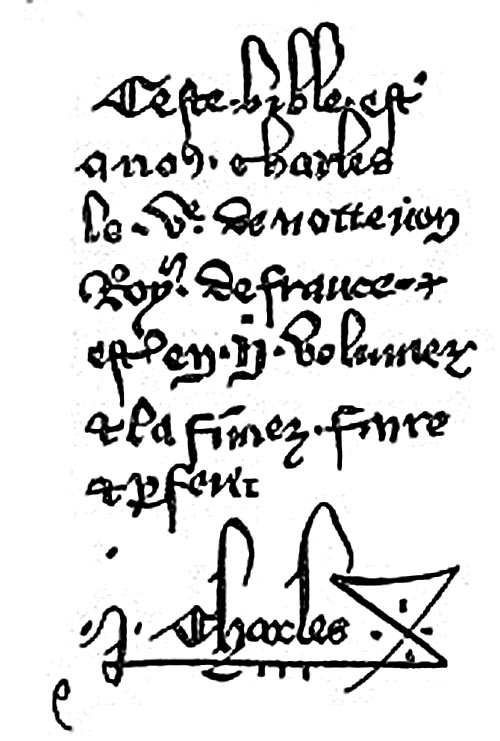 Ceste · bible · est
a noꝰ · charles
le · Vᵉ · de notre non
Roy · de france · ⁊
est en · ij · volumez
⁊ la fimez · faire
⁊
Charles